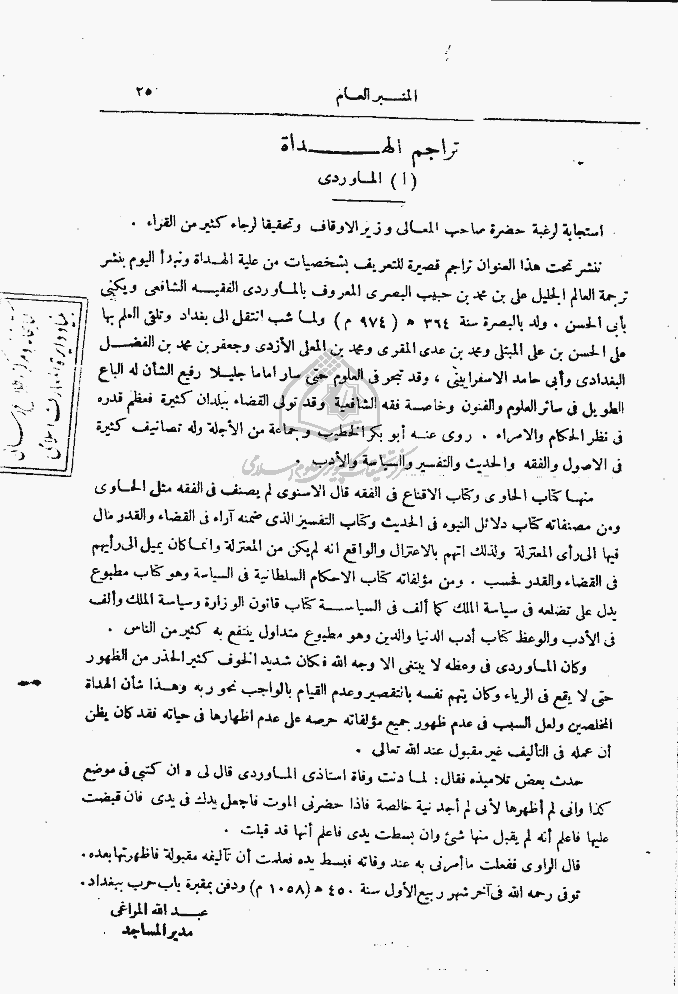 المنبر العام
٢٥
تراجم الهـــداة
(١) الماوردى
استجابة لرغبة حضرة صاحب المعالى وزير الاوقاف وتحقيقا لرجاء كثير من القراء .
ننشر تحت هذا العنوان تراجم قصيرة للتعريف بشخصيات من علية الهداة ونبدأ اليوم بنشر
ترجمة العالم الجليل على بن محمد بن حبيب البصرى المعروف بالماوردى الفقيه الشافعى ويكنى
بأبى الحسن . ولد بالبصرة سنة ٣٦٤ ه (٩٧٤ م) ولما شب انتقل الى بغداد وتلقى العلم بها
على الحسن بن على الجبلى ومحمد بن عدى المقرى ومحمد بن المعلى الأزدى وجعفر بن محمد بن الفضل
البغدادى وأبى حامد الاسفراينى ، وقد تبحر فى العلوم حتى سار اماما جليلا رفيع الشأن له الباع
الطويل فى سائر العلوم والفنون وخاصة فقه الشافعية وقد تولى القضاء ببلدان كثيرة فعظم قدره
فى نظر الحكام والامراء . روى عنه أبو بكر الخطيب وجماعة من الأجلة وله تصانيف كثيرة
فى الاصول والفقه والحديث والتفسير والسياسة والأدب .
منها كتاب الحاوى وكتاب الاقناع فى الفقه قال الاسنوى لم يصنف فى الفقه مثل الحاوى
ومن مصنفاته كتاب دلائل النبوه فى الحديث وكتاب التفسير الذى ضمنه آراء فى القضاء والقدر مال
فيها الى رأى المعتزلة ولذلك اتهم بالاعتزال والواقع انه لم يكن من المعتزلة وانما كان يميل الى رأيهم
فى القضاء والقدر فحسب . ومن مؤلفاته كتاب الاحكام السلطانية فى السياسة وهو كتاب مطبوع
يدل على تضلعه فى سياسة الملك كما ألف فى السياسة كتاب قانون الوزارة وسياسة الملك وألف
فى الأدب والوعظ كتاب أدب الدنيا والدين وهو مطبوع متداول ينتفع به كثير من الناس .
وكان الماوردى فى وعظه لا يبتغى الا وجه الله فكان شديد الخوف كثير الحذر من الظهور
حتى لا يقع فى الرياء وكان يتهم نفسه بالتقصير وعدم القيام بالواجب نحو ربه وهذا شأن الهداة
المخلصين ولعل السبب فى عدم ظهور جميع مؤلفاته حرصه على عدم اظهارها فى حياته فقد كان يظن
أن عمله فى التأليف غير مقبول عند الله تعالى .
حدث بعض تلاميذه فقال : لما دنت وفاة استاذى الماوردى قال لى « ان كتبى فى موضع
كذا وانى لم أظهرها لأنى لم أجد نية خالصة فاذا حضرنى الموت فاجعل يدك فى يدى فان قبضت
عليها فاعلم أنه لم يقبل منها شئ وان بسطت يدى فاعلم أنها قد قبلت .
قال الراوى ففعلت ما أمرنى به عند وفاته فبسط يده فعلمت أن تآليفه مقبولة فاظهرتها بعده .
توفى رحمه الله فى آخر شهر ربيع الأول سنة ٤٥٠ ه (١٠٥٨ م) ودفن بمقبرة باب حرب ببغداد .
عبد الله المراغى
مدير المساجد